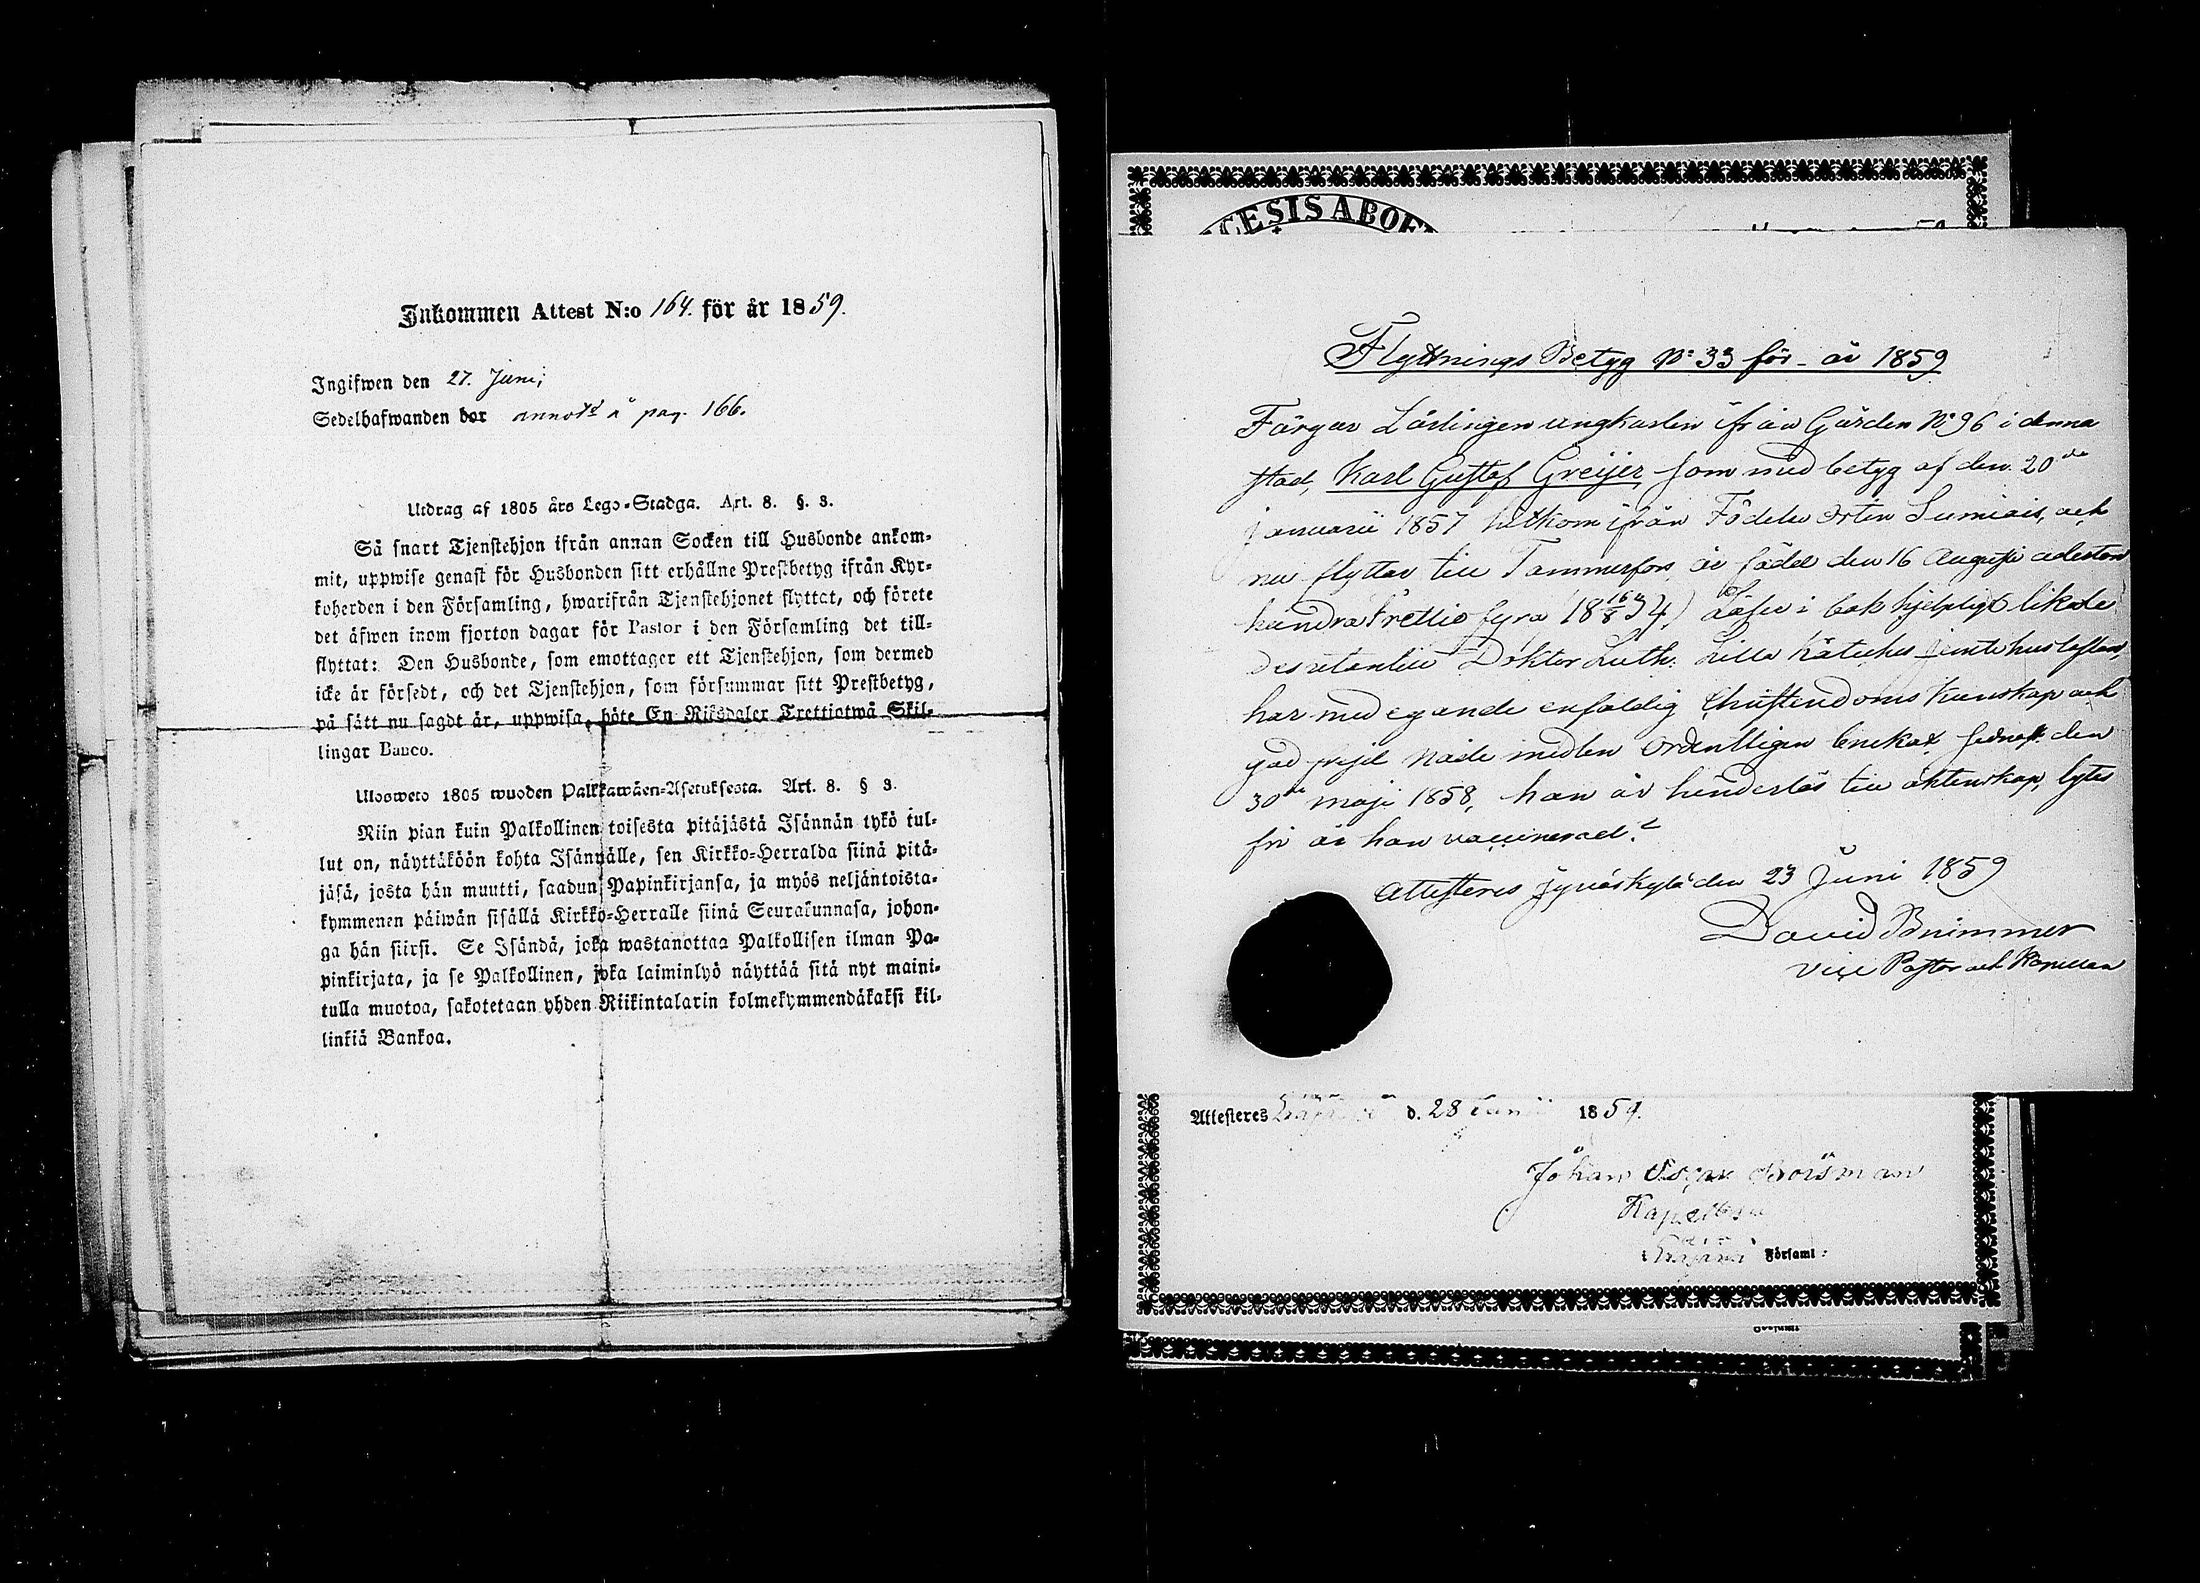 Inkommen Attest N:o 164. för år 1859.
Ingifwen den 27. Juni;
Sedelhafwanden bor annot:d å pag. 166.
Utdrag af 1805 års Lego-Stadga. Art. 8. §. 3.
Så snart Tjenstehjon ifrån annan Socken till Husbonde ankom-
mit, uppwise genast för Husbonden sitt erhållne Prestbetyg ifrån Kyr-
koherden i den Församling, hwarifrån Tjenstehjonet flyttat, och förete
det äfwen inom fjorton dagar för Pastor i den Församling det till-
flyttat: Den Husbonde, som emottager ett Tjenstehjon, som dermed
icke är försedt, och det Tjenstehjon, som försummar sitt Prestbetyg,
på sätt nu sagdt är, uppwisa, böte En Riksdaler Trettiotwå Skil-
lingar Banco.
Ulosweto 1805 wuoden Palkkawäen-Asetuksesta. Art. 8. § 3.
Niin pian kuin Palkollinen toisesta pitäjästä Isännän tykö tul-
lut on, näyttäköön kohta Isännälle, sen Kirkko-Herralda siinä pitä-
jäsä, josta hän muutti, saadun Papinkirjansa, ja myös neljäntoista-
kymmenen päiwän sisällä Kirkko-Herralle siinä Seurakunnasa, johon-
ga hän siirsi. Se Isändä, joka wastanottaa Palkollisen ilman Pa-
pinkirjata, ja se Palkollinen, joka laiminlyö näyttää sitä nyt maini-
tulla muotoa, sakotetaan yhden Riikintalarin kolmekymmendäkaksi kil-
linkiä Bankoa.
CESIS ABOE
Flyttnings Betyg N:o 33 för år 1859
Färgar Lärlingen ungkarlen ifrån Gården N:o 96 i denna
stad, Karl Gustaf Greijer som med betyg af den 20de
januarii 1857 hitkom ifrån Födelse Orten Sumiais, och
nu flyttar till Tammerfors, är född den 16 Augusti aderton
hundra trettio fyra 18 16/8 34,) Läser i bok hjelpligt likaledes
utantill Doktor Luth: Lilla Katches jemte hustaflan,
har med egande enfaldig Christendoms Kunskap och
god frejd Nådemedlen Ordentligen brukat sednast den
30de maji 1858, han är hinderlös till äktenskap, lytes
fri är han vaccinerad.
Attesteres Jyväskylä den 23 Juni 1859
David Brimmer
Vice Pastor och Kapellan
Attesteres d. 28 Junii 1859.
Johan Oscar
Kapellan
Församl: